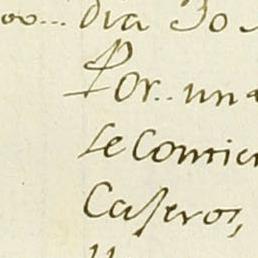 oo... dia 30
Por.. un
se Comie
Caseros,